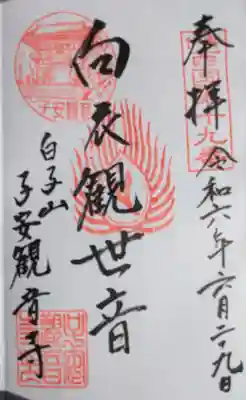 奉拝
令和六年六月二九日
白衣観世音
白子山
子安観音寺